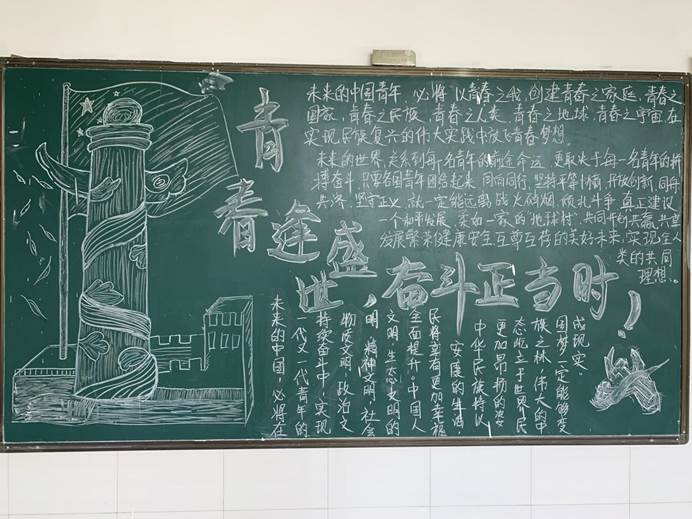 青春逢盛世，奋斗正当时！
未来的中国青年，必将以青春之我，创建青春之家庭，青春之
国家，青春之民族，青春之人类，青春之地球，青春之宇宙在
实现民族复兴的伟大实践中放飞青春梦想。
未来的世界，关系到每一名青年的前途命运，更取决于每一名青年的拼
搏奋斗，只要各国青年团结起来，同向同行，坚持和平，开放创新，同舟
共济，坚守正义，就一定能远离战火硝烟，真正建设
一个和平发展、亲如一家的“地球村”，共同开创共赢、共享
发展繁荣健康安全互尊互荐的美好未来，实现全人
类的共同
理想。
成现实。
国梦一定能够变
族之林，伟大的中
态屹立于世界民
更加昂扬的姿
中华民族将以
安康的生活，
民将享有更加幸福
全面提升，中国人
文明、生态文明的
明、精神文明、社会
物质文明、政治文
持续奋斗中，实现
一代又一代青年的
未来的中国，必将在